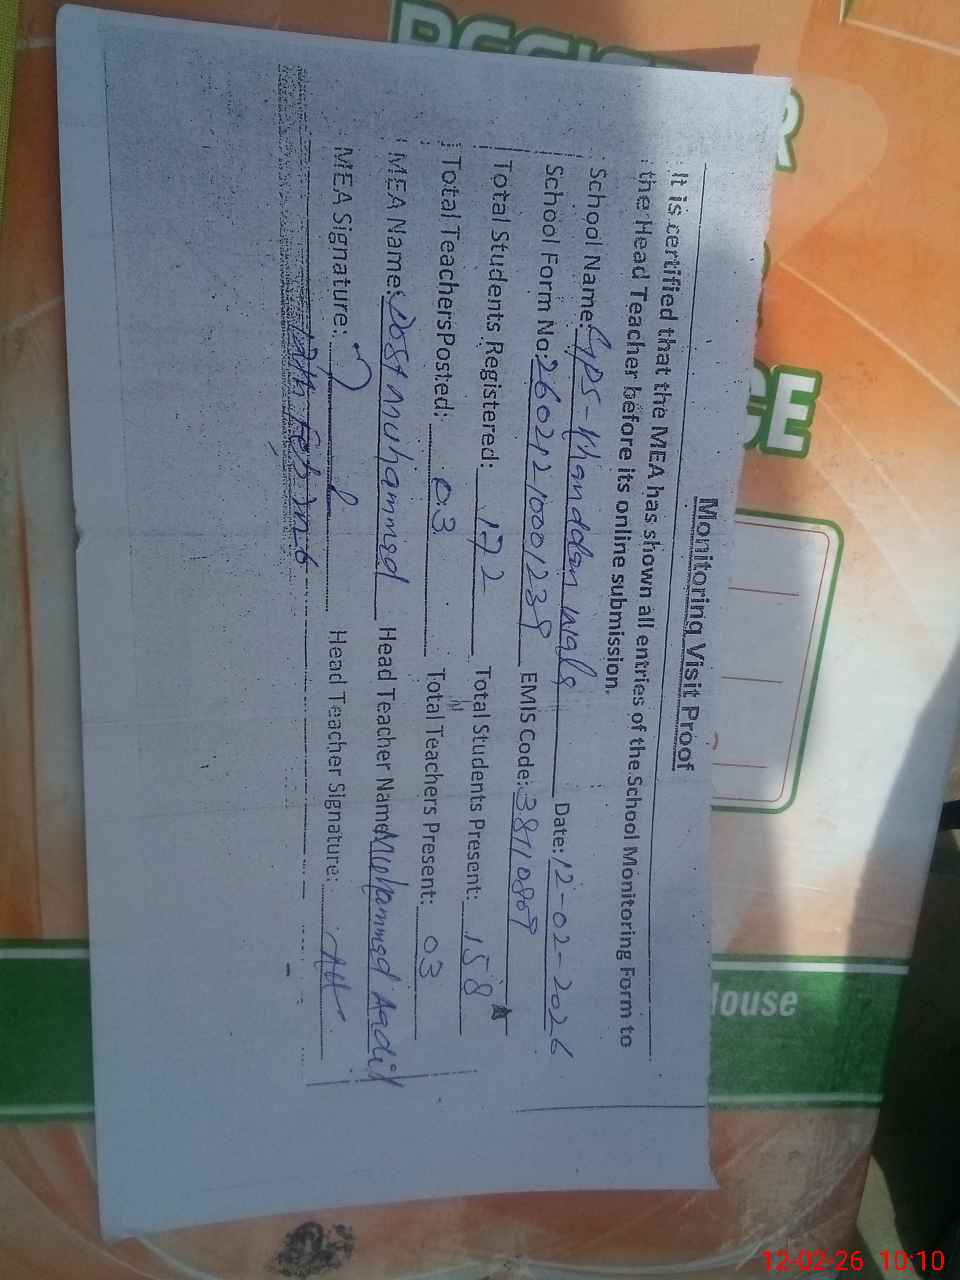 Monitoring Visit Proof
It is certified that the MEA has shown all entries of the School Monitoring Form to
the Head Teacher before its online submission.
School Name: GPS-Khanddan wala Date: 12-02-2026
School Form No: 26021210001239 EMIS Code: 38110809
Total Students Registered: 172 Total Students Present: 158
Total Teachers Posted: 03 Total Teachers Present: 03
MEA Name: Dost Muhammed Head Teacher Name: Muhammad Aadil
MEA Signature: Head Teacher Signature:
12th Feb
House
12-02-26 10:10